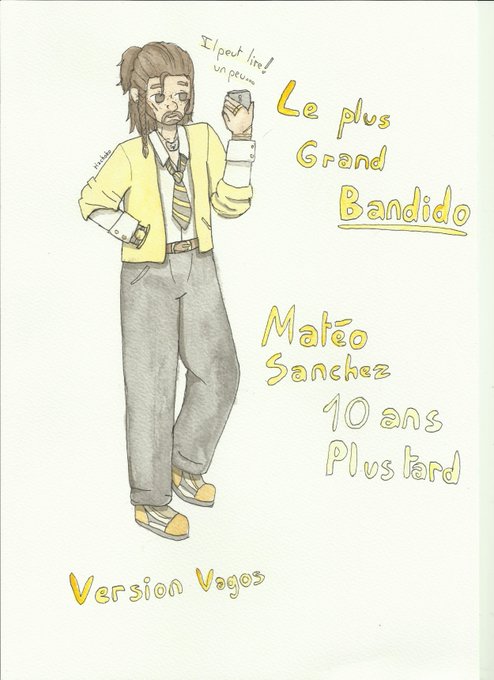 Il peut lire!
un peu...
Le plus
Grand
Bandido
Matéo
Sanchez
10 ans
Plus tard
Version Vagos